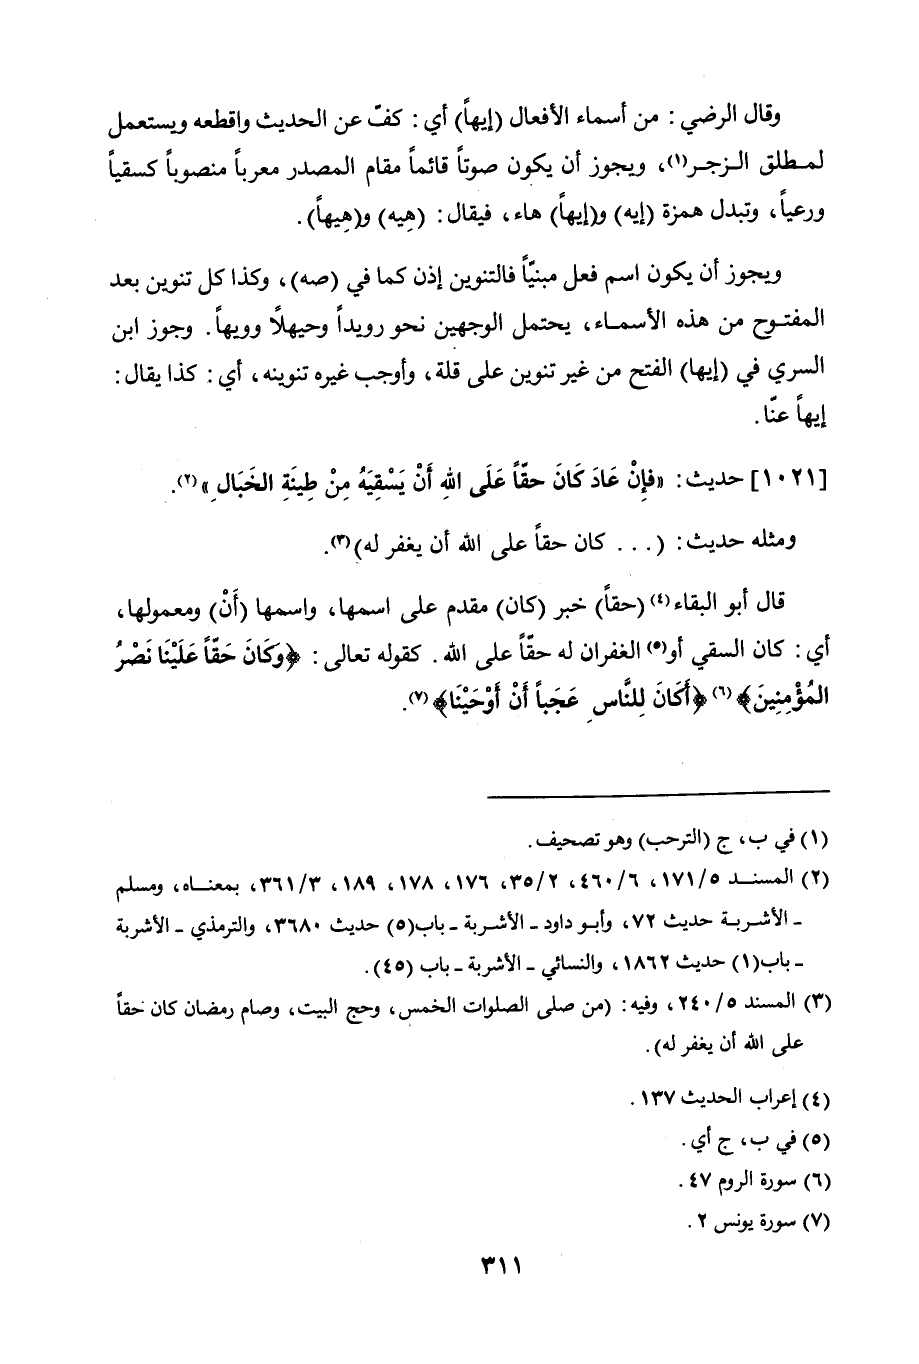 وقال الرضي : من أسماء الأفعال (إيهاً) أي : كفّ عن الحديث واقطعه ويستعمل
لمـطلق الـزجـر(١)، ويجوز أن يكون صوتاً قائماً مقام المصدر معرباً منصوباً كسقياً
ورعياً، وتبدل همزة (إيه) و(إيهاً) هاء، فيقال: (هِيه) و(هِيهاً).
ويجوز أن يكون اسم فعل مبنيّاً فالتنوين إذن كما في (صه)، وكذا كل تنوين بعد
المفتـوح من هذه الأسمـاء، يحتمل الوجهين نحو رويداً وحيهلاً وويهاً. وجوز ابن
السري في (إيها) الفتح من غير تنوين على قلة، وأوجب غيره تنوينه، أي : كذا يقال :
إيهاً عنّا.
[١٠٢١] حديث: «فإِنْ عَادَ كَانَ حقّاً عَلَى اللهِ أَنْ يَسْقِيَهُ مِنْ طِينَةِ الخَبَالِ»(٢).
ومثله حديث: (... كان حقاً على الله أن يغفر له)(٣).
قال أبو البقاء(٤) (حقاً) خبر (كان) مقدم على اسمها، واسمها (أَنْ) ومعمولها،
أي : كان السقي أو(٥) الغفران له حقّاً على الله. كقوله تعالى : ﴿وَكَانَ حَقّاً عَلَيْنَا نَصْرُ
المُؤْمِنِينَ﴾(٦) ﴿أَكَانَ لِلنَّاسِ عَجَباً أَنْ أَوْحَيْنَا﴾(٧).
(١) في ب، ج (الترحب) وهو تصحيف.
(٢) المسنـد ١٧١/٥، ٤٦٠/٦، ٣٥/٢، ١٧٦، ١٧٨، ١٨٩، ٣٦١/٣، بمعنـاه، ومسلم
ـ الأشـربـة حديث ٧٢، وأبـو داود ـ الأشـربة ـ باب(٥) حديث ٣٦٨٠، والترمذي ـ الأشربة
ـ باب(١) حديث ١٨٦٢، والنسائي ـ الأشربة ـ باب (٤٥).
(٣) المسند ٢٤٠/٥، وفيه: (من صلى الصلوات الخمس، وحج البيت، وصام رمضان كان حقاً
على الله أن يغفر له).
(٤) إعراب الحديث ١٣٧.
(٥) في ب، ج أي.
(٦) سورة الروم ٤٧.
(٧) سورة يونس ٢.
٣١١